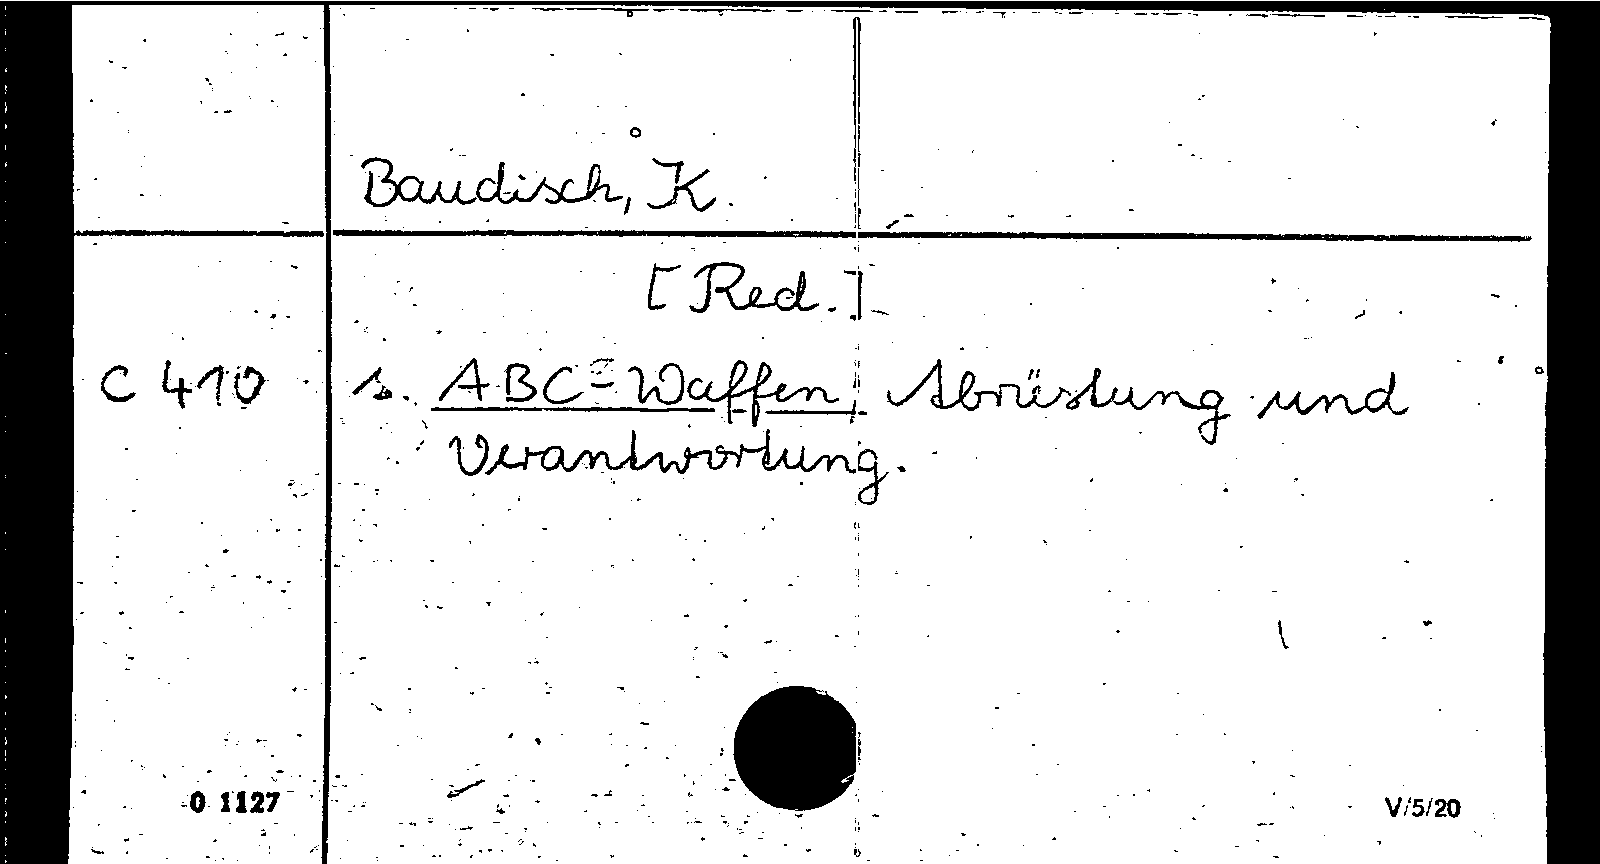 Baudisch, K.
[Red.]
C 410 s. ABC-Waffen, Abrüstung und
Verantwortung.
0 1127 V/5/20